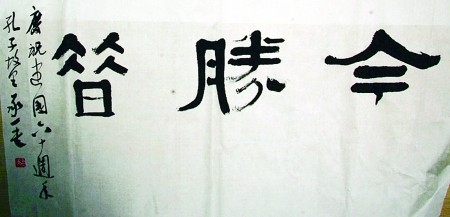 今勝昔
慶祝建國六十週年
孔子故里